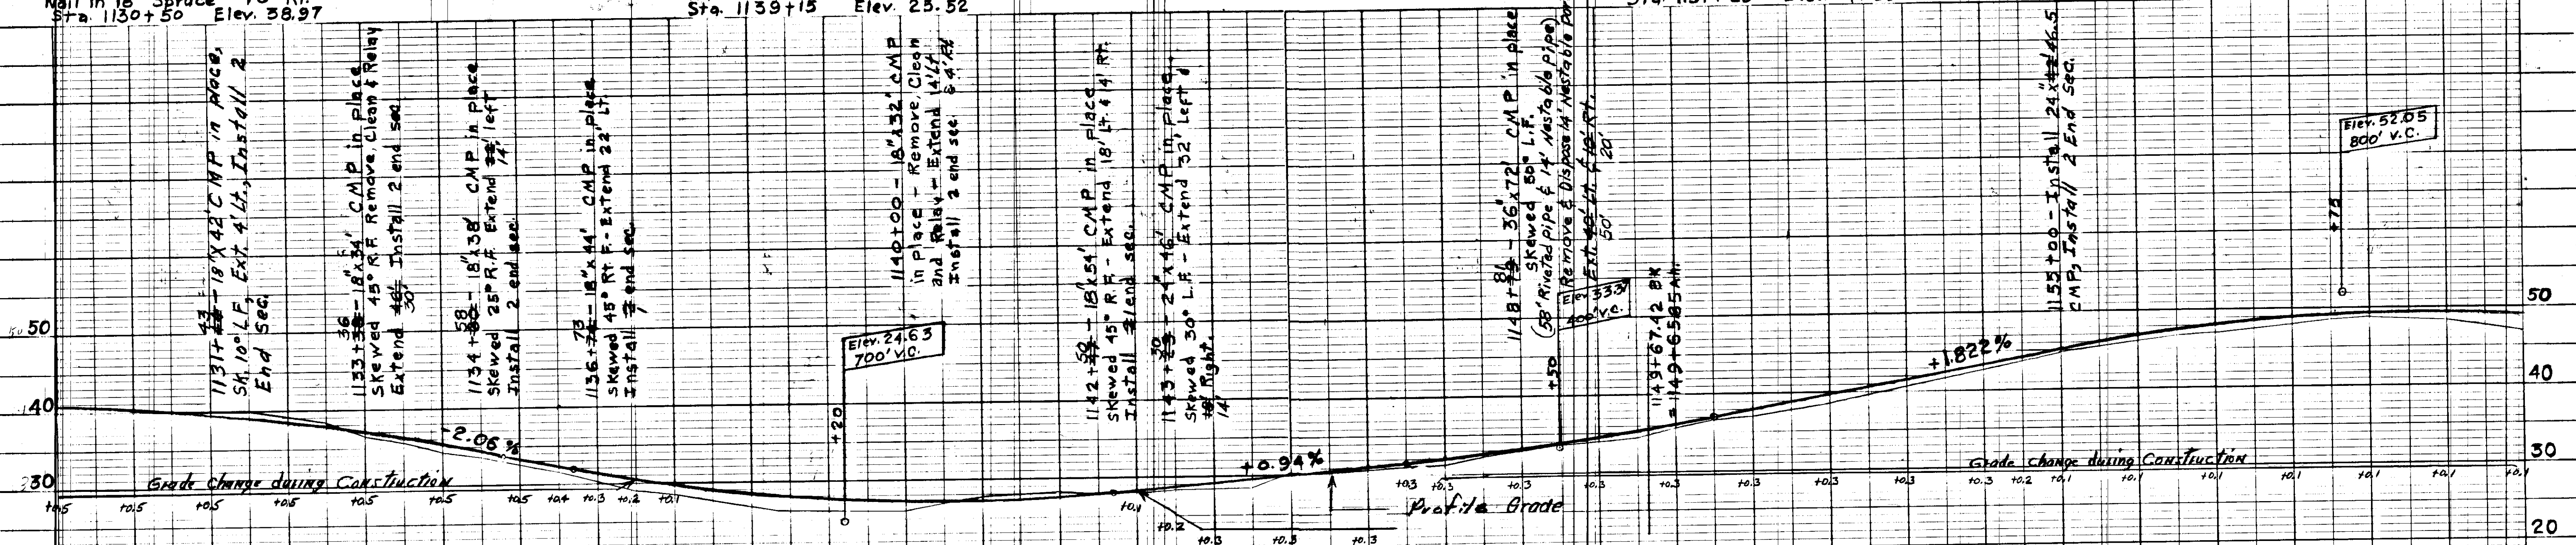 Nail in 18" Spruce
Sta. 1130+50 Elev. 38.97
Sta. 1139+15 Elev. 25.52
1131+43 - 18"x42' CMP in place,
Sk. 10° L.F., Ext. 4' Lt., Install 2
End Sec.
1133+36 - 18"x34' CMP in place
Skewed 45° R.F. Remove, Clean & Relay
Extend 46' Install 2 end sec.
30'
1134+58 - 18"x38' CMP in place
Skewed 25° R.F. Extend 22' left
14'
Install 2 end sec.
1136+73 - 18"x44' CMP in place
Skewed 45° Rt. F. - Extend 22' Lt.
Install 2 end sec.
1
1140+00 - 18"x32' CMP
in place - Remove, Clean
and Relay - Extend 14' Lt.
Install 2 end sec. & 4' Rt.
1142+50 - 18"x54' CMP in place
Skewed 45° R.F. - Extend 18' Lt. & 4' Rt.
Install 2 1 end sec.
1143+30 - 24"x46' CMP in place.
Skewed 30° L.F. - Extend 32' Left &
18' Right.
14'
1148+81 - 36"x72' CMP in place
Skewed 50° L.F.
(58' Riveted pipe & 14' Nestable pipe)
Remove & Dispose 14' Nestable Por
Ext. 40' Lt. & 18' Rt.
50' 20'
1149+67.42 BK
= 1149+65.85 Ah.
1155+00 - Install 24"x 46.5
CMP, Install 2 End Sec.
Elev. 24.63
700' V.C.
+20
Elev. 33.37
400' V.C.
+50
Elev. 52.05
800' V.C.
+75
50
40
30
50
40
30
20
-2.06%
+0.94%
+1.822%
Grade Change during Construction
Grade Change during Construction
Profile Grade
+0.5 +0.5 +0.5 +0.5 +0.5 +0.5 +0.5 +0.4 +0.3 +0.2 +0.1
+0.1 +0.2 +0.3 +0.3 +0.3
+0.3 +0.3 +0.3 +0.3 +0.3 +0.3 +0.3 +0.3 +0.3 +0.2 +0.1 +0.1 +0.1 +0.1 +0.1 +0.1 +0.1